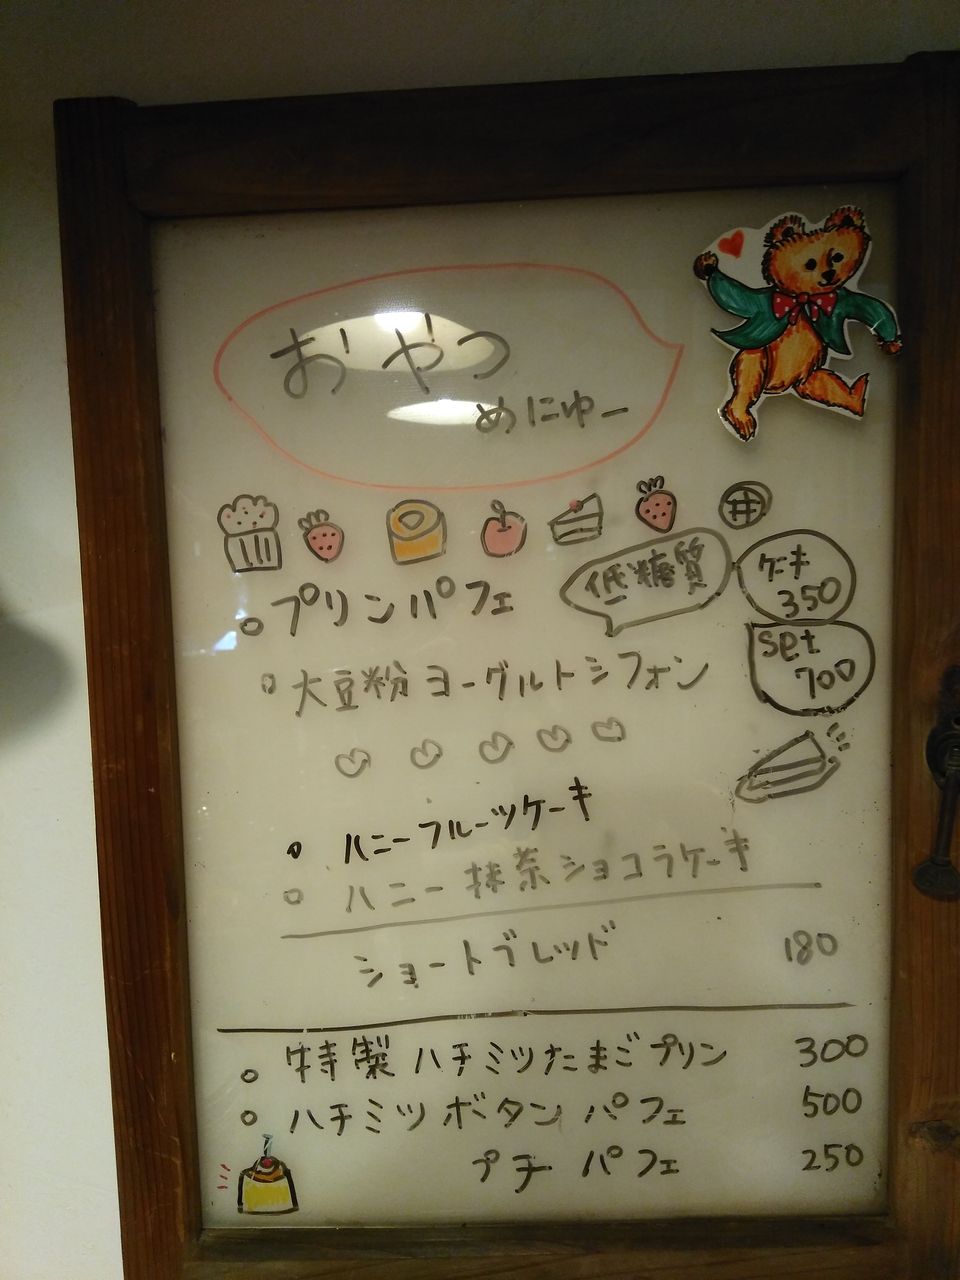 おやつ
めにゅー
低糖質
ケーキ
350
プリンパフェ
set
700
大豆粉ヨーグルトシフォン
ハニーフルーツケーキ
ハニー抹茶ショコラケーキ
ショートブレッド 180
特製ハチミツたまごプリン 300
ハチミツボタンパフェ 500
プチパフェ 250